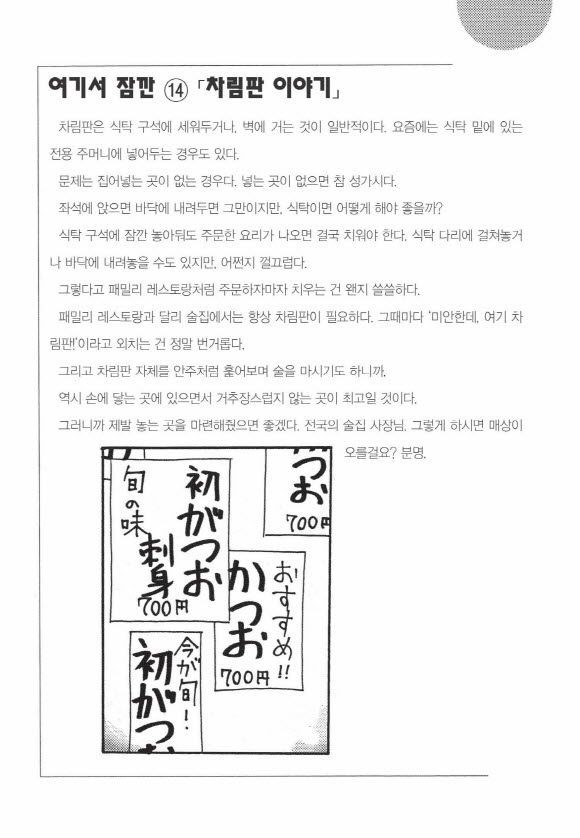 여기서 잠깐 ⑭ 「차림판 이야기」
차림판은 식탁 구석에 세워두거나, 벽에 거는 것이 일반적이다. 요즘에는 식탁 밑에 있는
전용 주머니에 넣어두는 경우도 있다.
문제는 집어넣는 곳이 없는 경우다. 넣는 곳이 없으면 참 성가시다.
좌석에 앉으면 바닥에 내려두면 그만이지만, 식탁이면 어떻게 해야 좋을까?
식탁 구석에 잠깐 놓아둬도 주문한 요리가 나오면 결국 치워야 한다. 식탁 다리에 걸쳐놓거
나 바닥에 내려놓을 수도 있지만, 어쩐지 껄끄럽다.
그렇다고 패밀리 레스토랑처럼 주문하자마자 치우는 건 왠지 쓸쓸하다.
패밀리 레스토랑과 달리 술집에서는 항상 차림판이 필요하다. 그때마다 ‘미안한데, 여기 차
림판!’이라고 외치는 건 정말 번거롭다.
그리고 차림판 자체를 안주처럼 훑어보며 술을 마시기도 하니까.
역시 손에 닿는 곳에 있으면서 거추장스럽지 않는 곳이 최고일 것이다.
그러니까 제발 놓는 곳을 마련해줬으면 좋겠다. 전국의 술집 사장님. 그렇게 하시면 매상이
오를걸요? 분명.
かつお
700円
初がつお
刺身
旬の味
700円
おすすめ!!
かつお
700円
今が旬!
初がつお